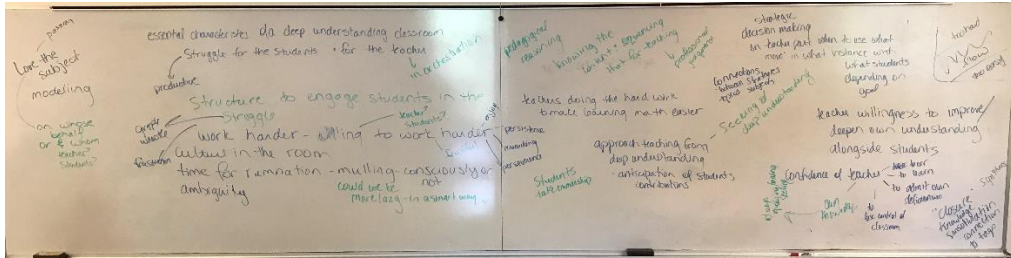 passion
Love the
subject
modelling
on whose
behalf
or & whom
teacher?
students?
essential characteristics of a deep understanding classroom
Struggle for the students · for the teacher
productive
in orchestration
Structure to engage students in the
struggle
teacher
students?
work harder - willing to work harder
frustration
culture in the room
time for rumination - mulling - consciously or
not
ambiguity
could we be
more lazy - in a smart way
persistence
perseverance
pedagogical
reasoning
knowing the
content + sequencing
that for teaching
professional
judgment
teachers doing the hard work
to make learning math easier
Connections
between strategies
approach teaching from
deep understanding
- anticipation of students
contributions
Students
take ownership
Seeking of
deep understanding
strategic
decision making
on teacher part when to use what
"move" in what instance with
what students
depending on
goal
too easy
teacher willingness to improve
deepen own understanding
alongside students
confidence of teacher
to learn
to admit own
deficiencies
to
lose control of
classroom
own
· Closure
knowledge
consolidation
connection
to togo